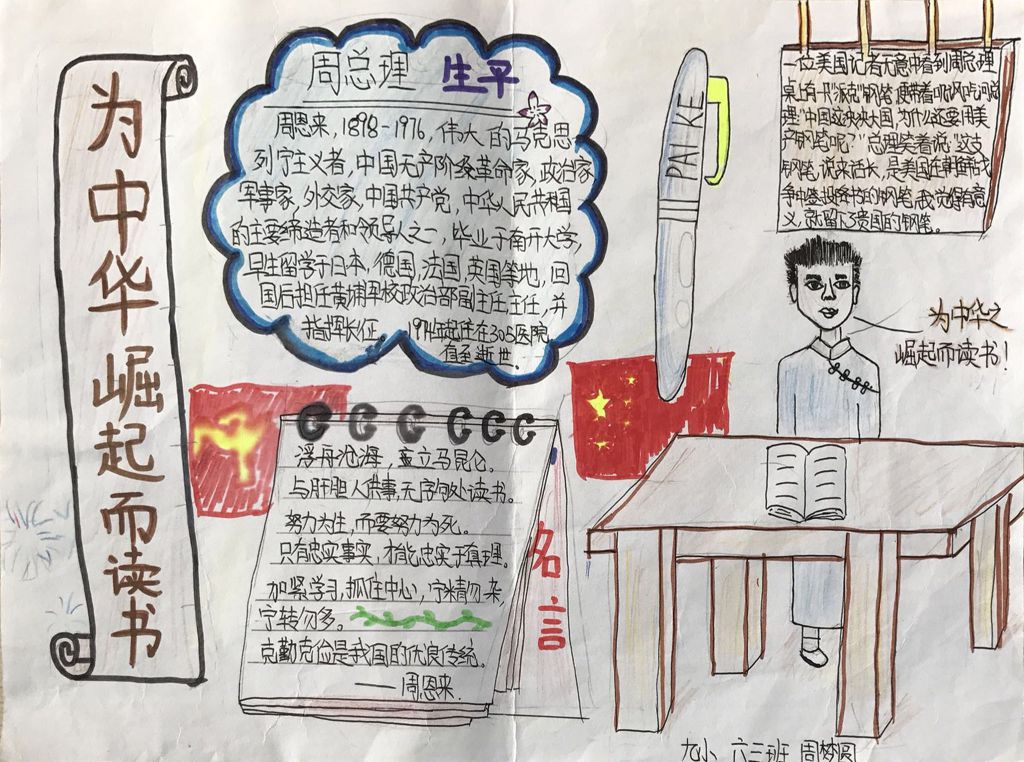 为中华崛起而读书
周总理 生平
周恩来,1898-1976,伟大的马克思
列宁主义者,中国无产阶级革命家,政治家
军事家,外交家,中国共产党,中华人民共和国
的主要缔造者和领导人之一,毕业于南开大学,
早年留学于日本,德国,法国,英国等地,回
国后担任黄埔军校政治部副主任,主任,并
指挥长征。1974年起住在305医院
直至逝世.
PAI KE
一位美国记者无意中看到周总理
桌上有一只"派克"钢笔,便带着
理:"中国这泱泱大国,为什么还要用美
产钢笔呢?"总理笑着说:"这支
钢笔,说来话长,是美国在朝鲜战
争中
义,就留下了贵国的钢笔。
为中华之
崛起而读书!
浮舟沧海,立马昆仑。
与肝胆人共事,无字句处读书。
努力为生,而要努力为死。
只有忠实事实,才能忠实于真理。
加紧学习,抓住中心,宁精勿杂,
宁转勿多。
克勤克俭是我国的优良传统。
——周恩来
名言
九小 六三班 周梦圆